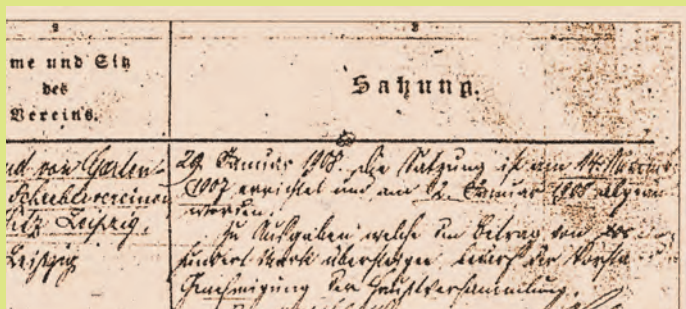 2
3
me und Sitz
des
Vereins.
Satzung.
nd von Garten-
Schrebervereinen
Sitz Leipzig.
Leipzig
29. Januar 1908. Die Satzung ist am
1907 errichtet und am 12. Januar 1908
worden.
Zu Ausgaben, welche den Betrag von
hundert Mark übersteigen, bedarf der Vorsta
Genehmigung der Hauptversammlung.